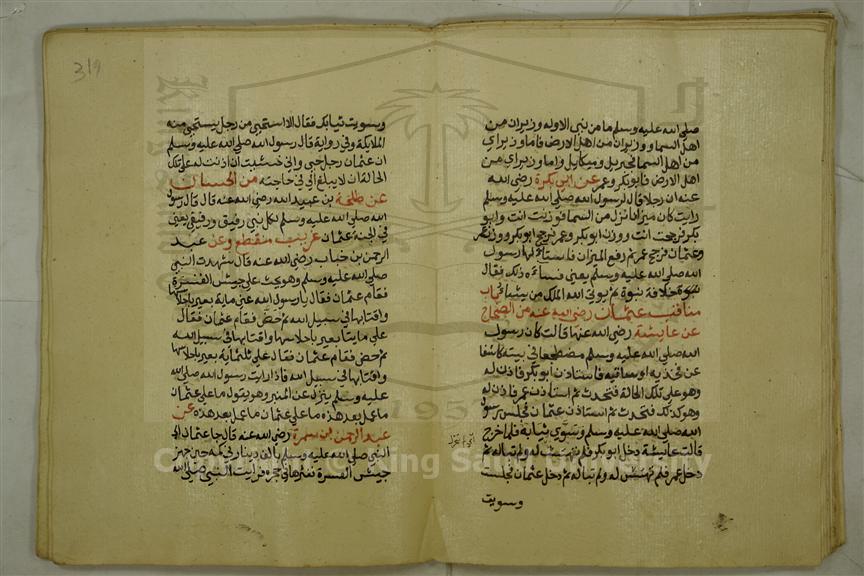 صلى الله عليه وسلم ما من نبي الا وله وزيران من
اهل السما ووزيران من اهل الارض فاما وزيراي
من اهل السما فجبريل وميكايل واما وزيراي من
اهل الارض فابو بكر وعمر عن ابي بكرة رضي الله
عنه ان رجلا قال لرسول الله صلى الله عليه وسلم
رايت كان ميزانا نزل من السما فوزنت انت وابو
بكر فرجحت انت ووزن ابو بكر وعمر فرجح ابو بكر ووزن عمر
وعثمان فرجح عمر ثم رفع الميزان فاستاء لها رسول
الله صلى الله عليه وسلم يعني فساءه ذلك فقال
خلافة نبوة ثم يوتي الله الملك من يشا باب
مناقب عثمان رضي الله عنه من الصحاح
عن عائيشة رضي الله عنها قالت كان رسول
الله صلى الله عليه وسلم مضطجعا في بيته كاشفا
عن فخذيه او ساقيه فاستاذن ابو بكر فاذن له
وهو على تلك الحالة فتحدث ثم استاذن عمر فاذن له
وهو كذلك فتحدث ثم استاذن عثمان فجلس رسول
الله صلى الله عليه وسلم وسوي ثيابه فلما خرج
قالت عائيشة دخل ابو بكر فلم تهتش له ولم تباله ثم
دخل عمر فلم تهتش له ولم تباله ثم دخل عثمان فجلست
وسويت
319
وسويت ثيابك فقال الا استحيي من رجل يستحيي منه
الملايكة وفي رواية قال رسول الله صلى الله عليه وسلم
ان عثمان رجل حيي واني خشيت ان اذنت له على تلك
الحالة ان لا يبلغ الي في حاجته من الحسان
عن طلحة بن عبيد الله رضي الله عنه قال قال رسول
الله صلى الله عليه وسلم لكل نبي رفيق ورفيقي يعني
في الجنة عثمان غريب منقطع وعن عبد
الرحمن بن خباب رضي الله عنه قال شهدت النبي
صلى الله عليه وسلم وهو يحث على جيش العسرة
فقام عثمان فقال يا رسول الله علي ماية بعير باحلاسها
واقتابها في سبيل الله ثم حض فقام عثمان فقال
علي مايتا بعير باحلاسها واقتابها في سبيل الله
ثم حض فقام عثمان فقال علي ثلثماية بعير باحلاسها
واقتابها في سبيل الله فاذا رايت رسول الله صلى الله
عليه وسلم ينزل عن المنبر وهو يقول ما على عثمان
ما عمل بعد هذه ما على عثمان ما عمل بعد هذه عن
عبد الرحمن بن سمرة رضي الله عنه قال جا عثمان الى
النبي صلى الله عليه وسلم بالف دينار في كمه حين جهز
جيش العسرة فنثرها في حجره فرايت النبي صلى الله
1957